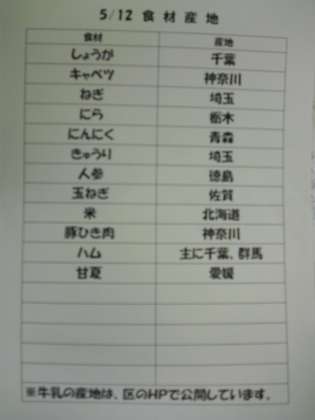 5/12 食材産地
食材 産地
しょうが 千葉
キャベツ 神奈川
ねぎ 埼玉
にら 栃木
にんにく 青森
きゅうり 埼玉
人参 徳島
玉ねぎ 佐賀
米 北海道
豚ひき肉 神奈川
ハム 主に千葉、群馬
甘夏 愛媛
※牛乳の産地は、区のHPで公開しています。